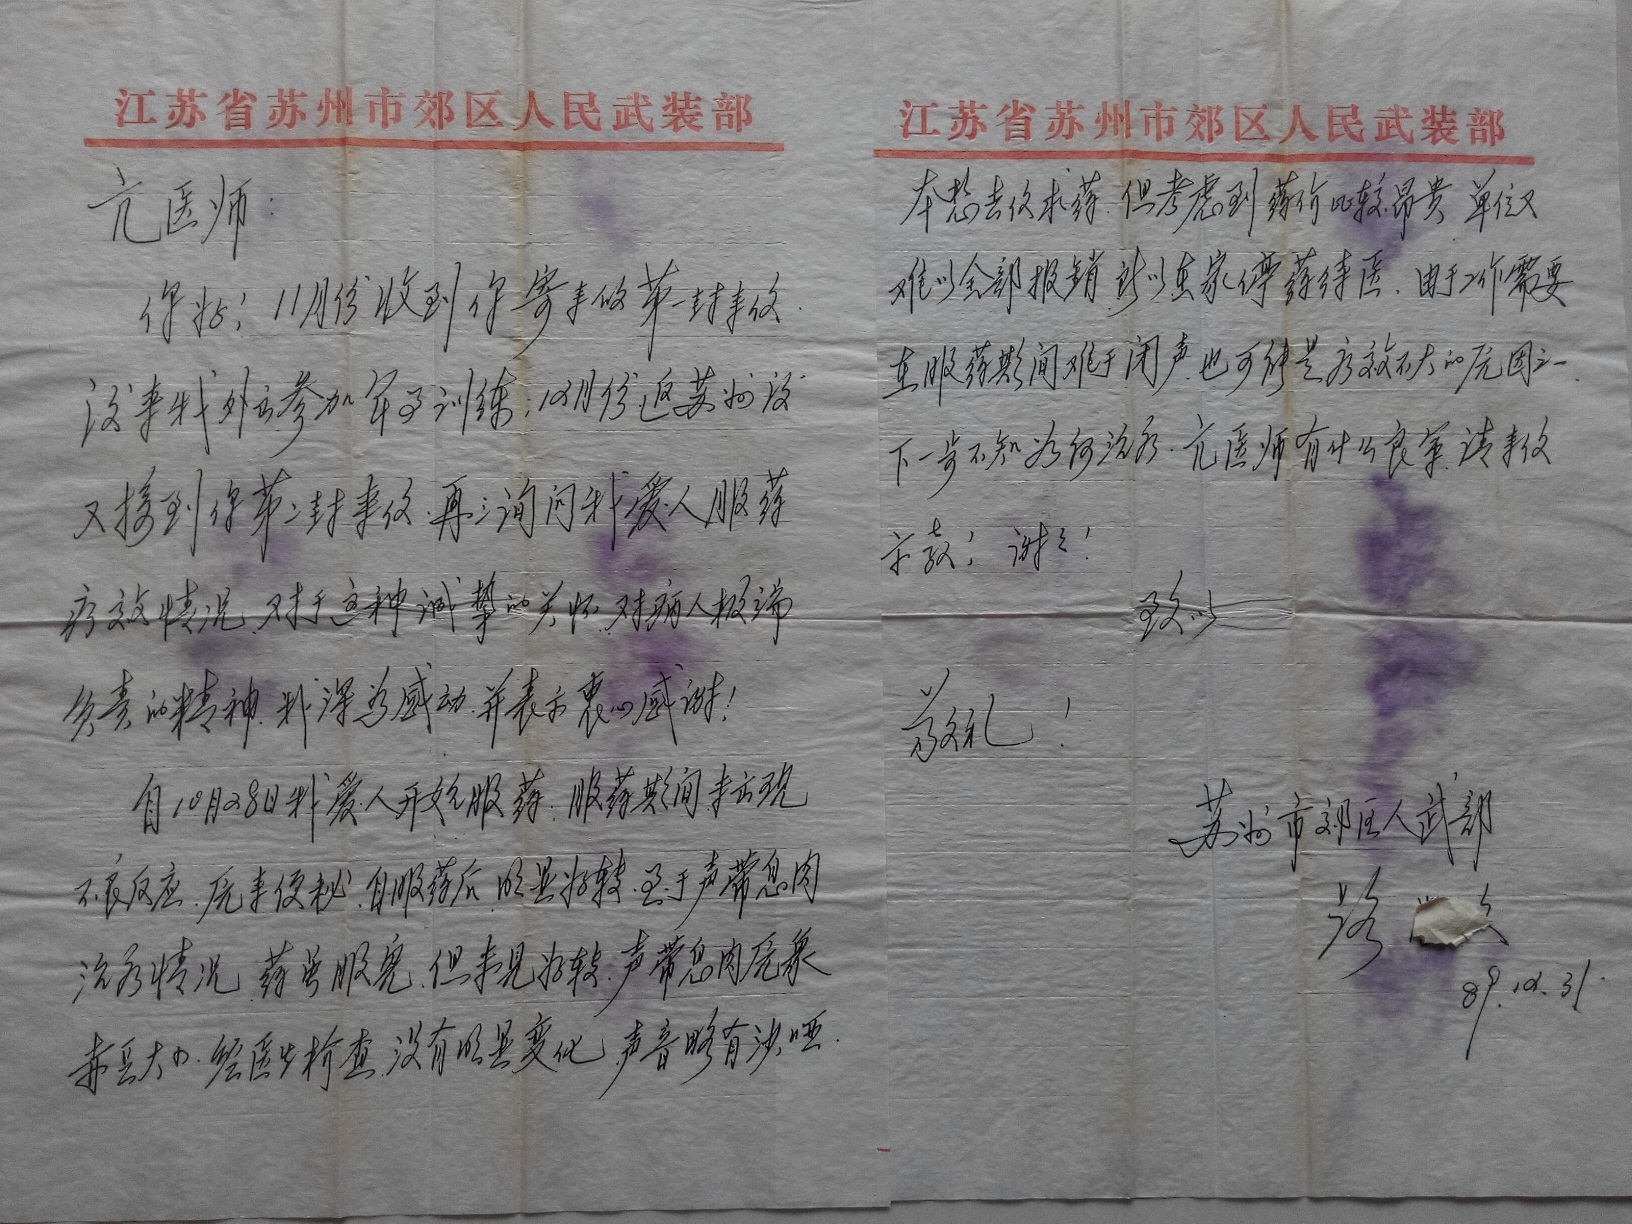 江苏省苏州市郊区人民武装部
亢医师:
你好!11月份收到你寄来的第一封来信.
后来我外出参加军事训练,12月份返苏州后
又接到你第二封来信.再三询问我爱人服药
疗效情况.对于这种诚挚的关怀.对病人极端
负责的精神.我深为感动.并表示衷心感谢!
自10月28日我爱人开始服药.服药期间未出现
不良反应.原来便秘.自服药后.明显好转.至于声带息肉
治疗情况.药虽服完.但未见好转.声带息肉原象
赤豆大小.经医生检查.没有明显变化.声音略有沙哑.
江苏省苏州市郊区人民武装部
本想去信求药.但考虑到药价比较昂贵 单位又
难以全部报销 所以在家停药待医.由于工作需要
在服药期间难于闭声.也可能是疗效不大的原因之一.
下一步不知如何治疗.亢医师有什么良策.请来信
示教!谢谢!
致以
敬礼!
苏州市郊区人武部
路
89.12.31.